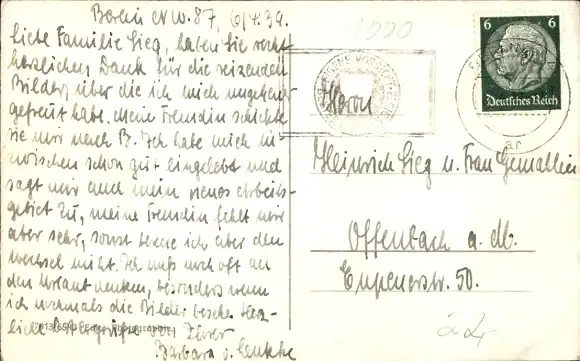 Berlin N.W. 87, 6/4.39.
liebe Familie Sieg, haben Sie recht
herzlichen Dank für die reizenden
Bilder, über die ich mich ungeheuer
gefreut habe. Meine Freundin schickte
sie mir nach B. Ich habe mich in-
zwischen schon gut eingelebt und
sagt mir auch mein neues Arbeits-
gebiet zu, meine Freundin fehlt mir
aber sehr, sonst bereue ich aber den
Wechsel nicht. Ich muß noch oft an
den Urlaub denken, besonders wenn
ich nochmals die Bilder besehe. Herz-
liche Ostergrüße von Ihrer
Barbara v.
Photographie
1000
6 6
Deutsches Reich
Herrn
Heinrich Sieg u. Frau Gemahlin
Offenbach a. M.
Eupenerstr. 50.